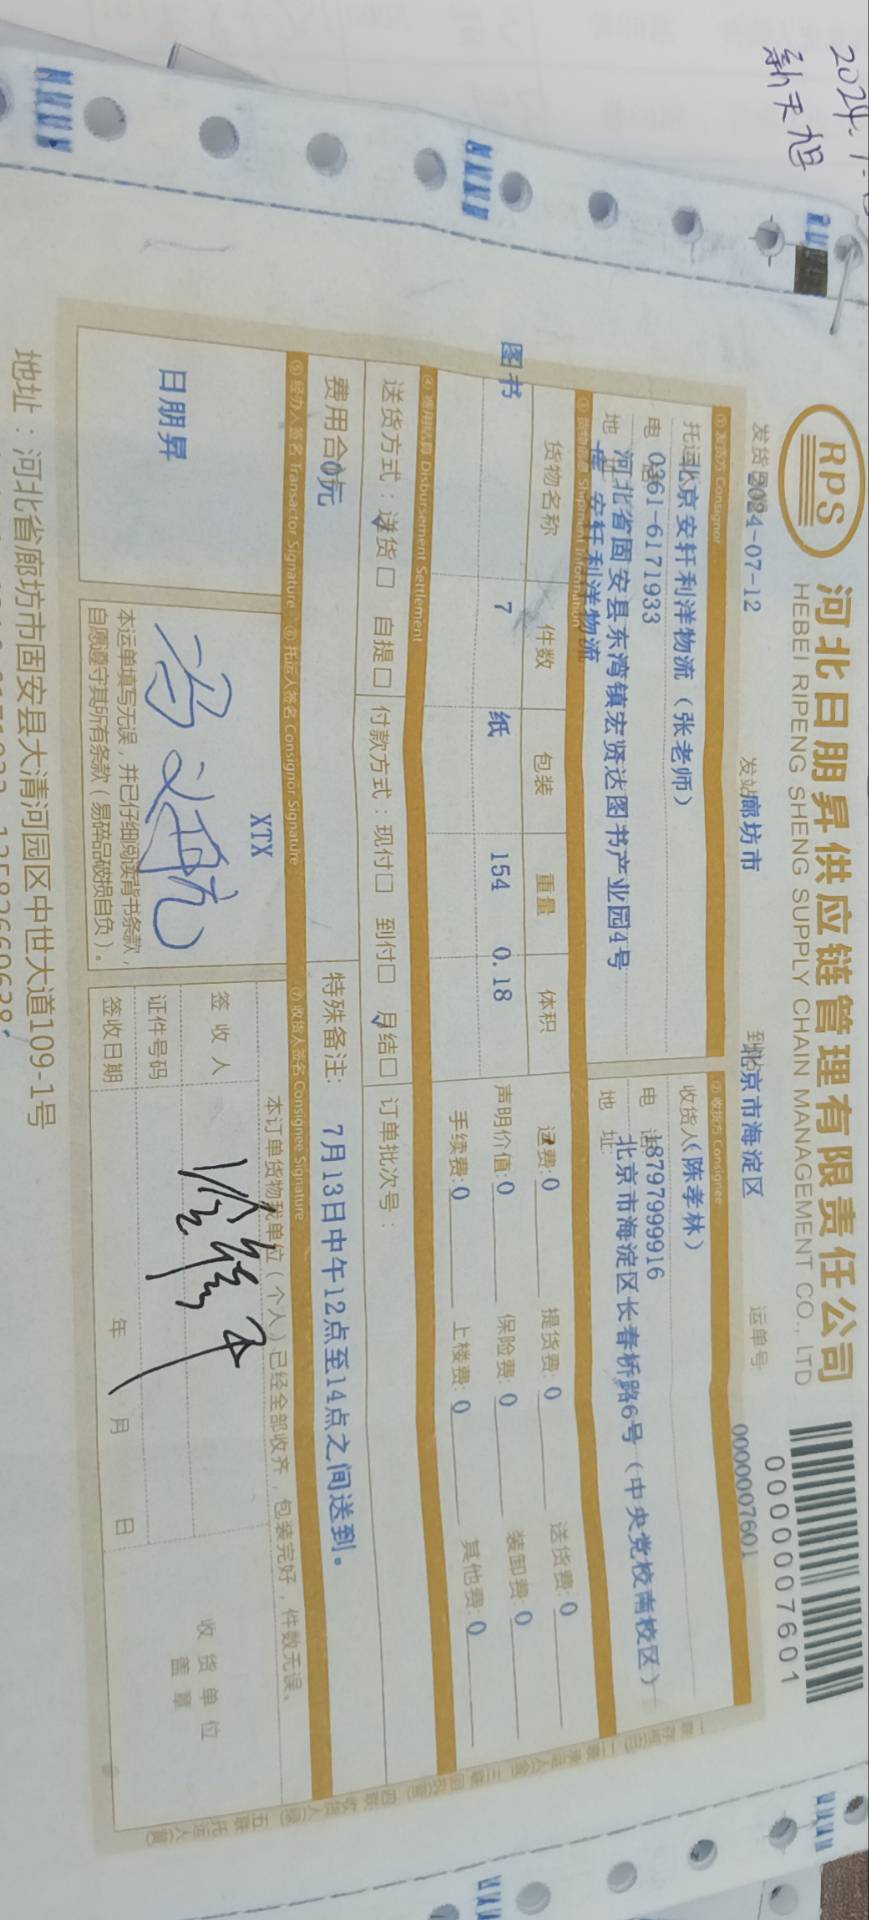 新天旭
RPS
河北日朋昇供应链管理有限责任公司
HEBEI RIPENG SHENG SUPPLY CHAIN MANAGEMENT CO., LTD
0000007601
2024-07-12 发站 廊坊市 北京市海淀区 运单号 0000007601
①发货方 Consignor ②收货方 Consignee
北京安轩利洋物流（张老师） 收货人（陈孝林）
电 0361-6171933 电 18797999916
地 河北省固安县东湾镇宏贤达图书产业园4号 地址 北京市海淀区长春桥路6号（中央党校南校区）
库 安轩利洋物流
③货物信息 Shipment Information
货物名称 件数 包装 重量 体积 运费:0 提货费:0 送货费:0
图书 7 纸 154 0.18 声明价值:0 保险费:0 装卸费:0
手续费:0 上楼费:0 其他费:0
④费用结算 Disbursement Settlement
送货方式：送货☑ 自提□ 付款方式：现付□ 到付□ 月结☑ 订单批次号：
费用合 0元 特殊备注: 7月13日中午12点至14点之间送到。
⑤经办人签名 Transactor Signature ⑥托运人签名 Consignor Signature ⑦收货人签名 Consignee Signature
日朋昇
XTX
本运单填写无误，并已仔细阅读背书条款，
自愿遵守其所有条款（易碎品破损自负）。
本订单货物我单位（个人）已经全部收齐，包装完好，件数无误。
签收人
证件号码
签收日期 年 月 日
收货单位
盖章
地址：河北省廊坊市固安县大清河园区中世大道109-1号